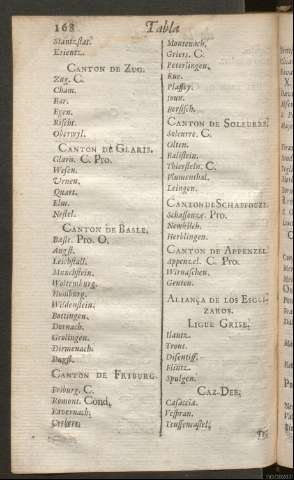 168
Tabla
Stantzstat.
Erientz.
CANTON DE ZUG.
Zug. C.
Cham.
Bar.
Egen.
Risch.
Oberwyl.
CANTON DE GLARIS.
Glaris. C. Pro.
Wesen.
Urnen.
Quart.
Elm.
Nestel.
CANTON DE BASLE.
Basle. Pro. O.
Augst.
Leichstall.
Munchstein.
Waltemburg.
Homburg.
Wildenstein.
Bottingen.
Dornach.
Grelingen.
Dirmenach.
Dugst.
CANTON DE FRIBURG.
Friburg. C.
Romont. Cond.
Favernach.
Montenach.
Griers. C.
Peterlingen.
Rue.
Plaffey.
Joun.
Bersisch.
CANTON DE SOLEURRE.
Soleurre. C.
Olten.
Balistein.
Thierstein. C.
Blumenthal.
Leingen.
CANTON DE SCHAFFOUZE.
Schaffouze. Pro.
Newkilch.
Herblingen.
CANTON DE APPENZEL.
Appenzel. C. Pro.
Wirnaschen.
Genton.
ALIANÇA DE LOS ESGUI-
ZAROS.
LIGUE GRISE.
Ilantz.
Tront.
Disentiss.
Flintz.
Splugen.
CAZ-DEE.
Casaccia.
Vespran.
Teussencastel.